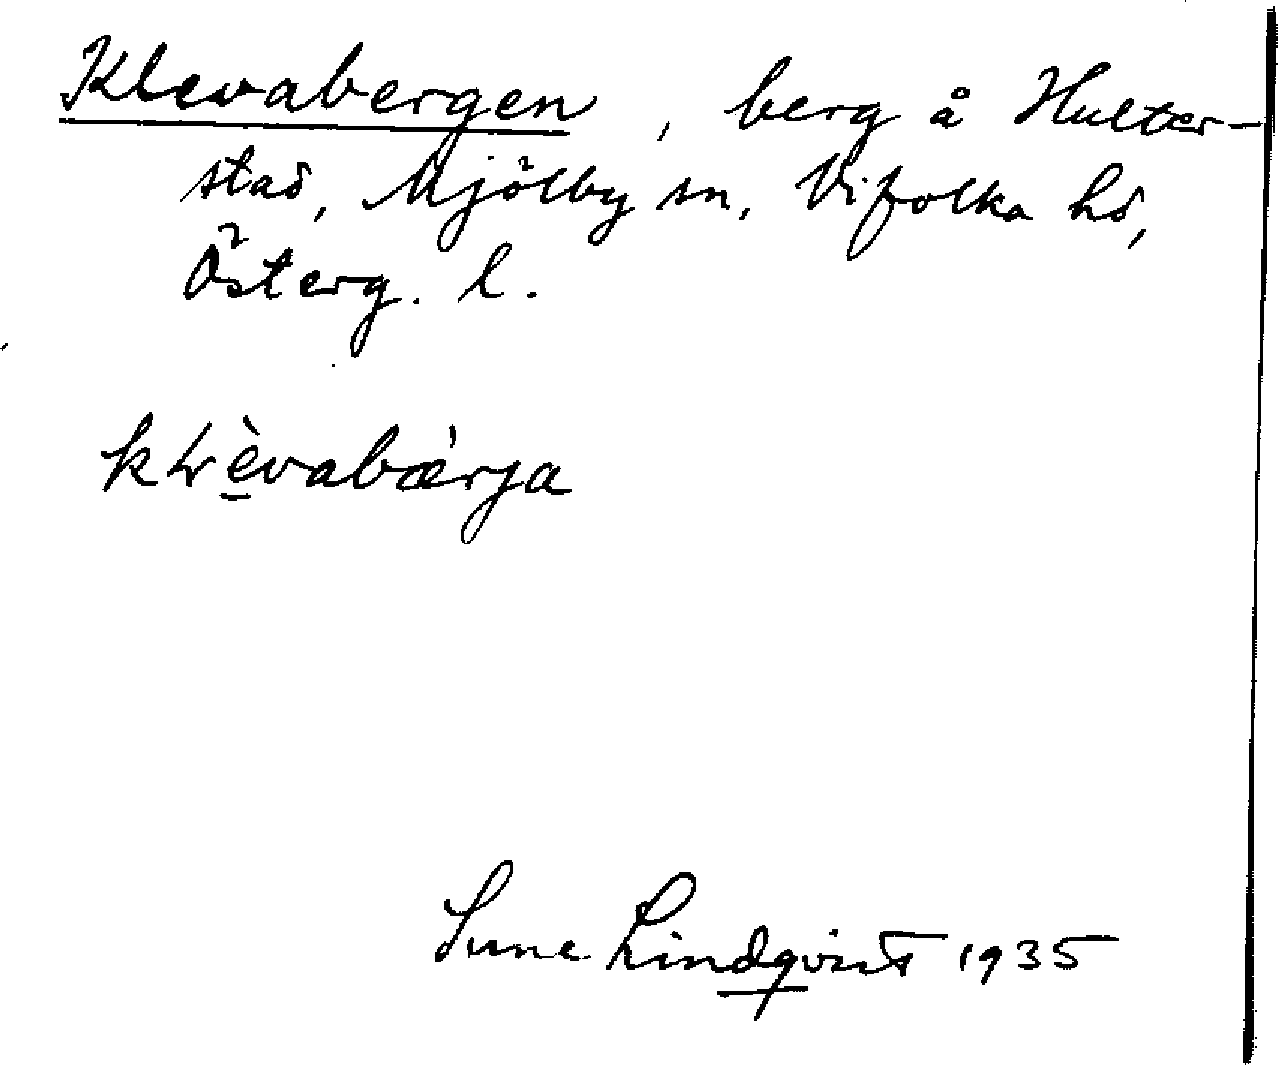 Klevabergen, berg å Hulter-
stad, Mjölby sn, Vifolka hd,
Österg. l.
klèvabǽrja
Sune Lindqvist 1935